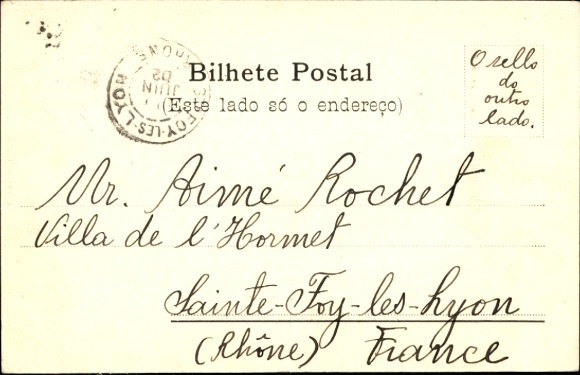 Bilhete Postal
(Este lado só o endereço)
O sello
do
outro
lado.
FOY-LES-LYON
RHONE
JUIN
02
Mr. Aimé Rochet
Villa de l'Hormet
Sainte-Foy-les-Lyon
(Rhône) France